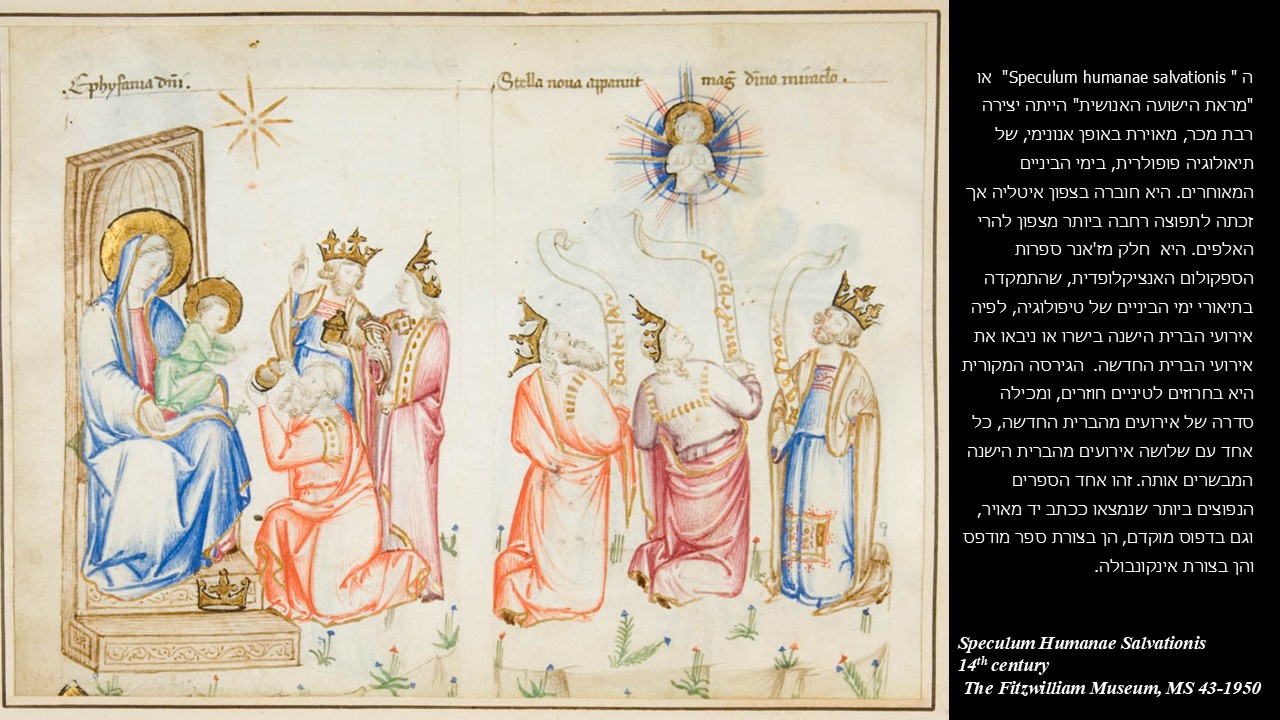 Ephyfania dñi.
Stella nova apparuit
mag̃ dĩno miraclo.
baltisar
melchior
ה " Speculum humanae salvationis" או
"מראת הישועה האנושית" הייתה יצירה
רבת מכר, מאוירת באופן אנונימי, של
תיאולוגיה פופולרית, בימי הביניים
המאוחרים. היא חוברה בצפון איטליה אך
זכתה לתפוצה רחבה ביותר מצפון להרי
האלפים. היא חלק מז'אנר ספרות
הספקולום האנציקלופדית, שהתמקדה
בתיאורי ימי הביניים של טיפולוגיה, לפיה
אירועי הברית הישנה בישרו או ניבאו את
אירועי הברית החדשה. הגירסה המקורית
היא בחרוזים לטיניים חוזרים, ומכילה
סדרה של אירועים מהברית החדשה, כל
אחד עם שלושה אירועים מהברית הישנה
המבשרים אותה. זהו אחד הספרים
הנפוצים ביותר שנמצאו ככתב יד מאויר,
וגם בדפוס מוקדם, הן בצורת ספר מודפס
והן בצורת אינקונבולה.
Speculum Humanae Salvationis
14th century
The Fitzwilliam Museum, MS 43-1950